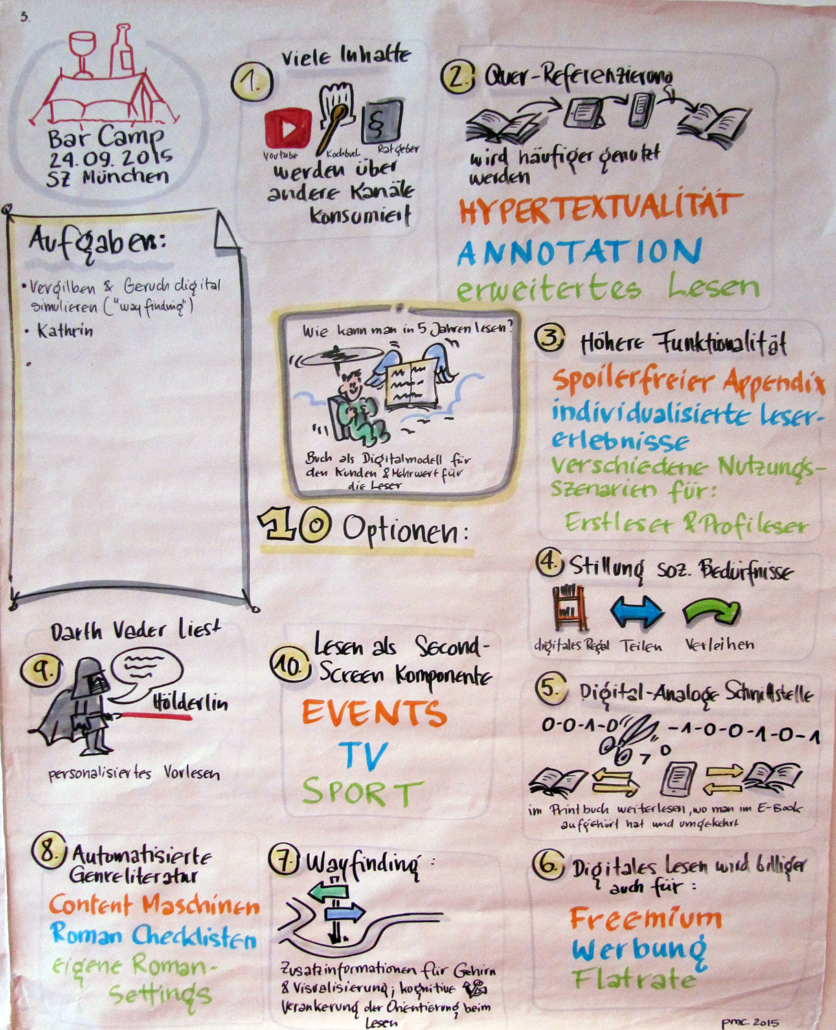 3.
Bar Camp
24.09.2015
SZ München
Aufgaben:
• Vergilben & Geruch digital
simulieren ("wayfinding")
• Kathrin
•
1. Viele Inhalte
Youtube Kochbuch § Ratgeber
werden über
andere Kanäle
konsumiert
2. Quer-Referenzierung
wird häufiger genutzt
werden
HYPERTEXTUALITÄT
ANNOTATION
erweitertes Lesen
Wie kann man in 5 Jahren lesen?
Buch als Digitalmodell für
den Kunden & Mehrwert für
die Leser
10 Optionen:
3. Höhere Funktionalität
Spoilerfreier Appendix
individualisierte Leser-
erlebnisse
verschiedene Nutzungs-
szenarien für:
Erstleser & Profileser
4. Stillung soz. Bedürfnisse
digitales Regal Teilen Verleihen
5. Digital-Analoge Schnittstelle
0-0-1-0 -1-0-0-1-0-1
im Printbuch weiterlesen, wo man im E-Book
aufgehört hat und umgekehrt
6. Digitales Lesen wird billiger
auch für:
Freemium
Werbung
Flatrate
7. Wayfinding:
Zusatzinformationen für Gehirn
& Visualisierung; kognitive
Verankerung der Orientierung beim
Lesen
8. Automatisierte
Genreliteratur
Content Maschinen
Roman Checklisten
eigene Roman-
Settings
Darth Vader liest
9.
Hölderlin
personalisiertes Vorlesen
10. Lesen als Second-
Screen Komponente
EVENTS
TV
SPORT
pmc 2015